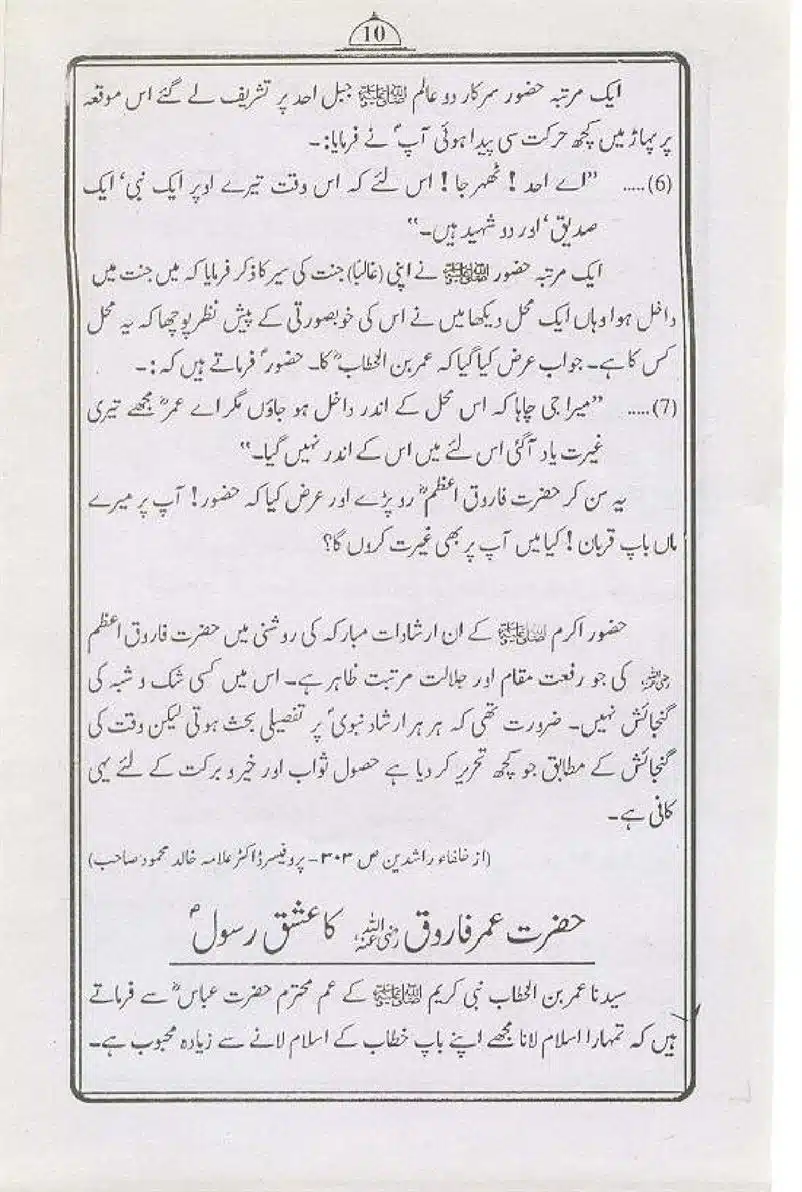 10
ایک مرتبہ حضور سرکار دو عالم ﷺ جبل احد پر تشریف لے گئے اس موقعہ
پر پہاڑ میں کچھ حرکت سی پیدا ہوئی آپؐ نے فرمایا:۔
(6)..... ”اے احد ! ٹھہر جا ! اس لئے کہ اس وقت تیرے اوپر ایک نبی‘ ایک
صدیق‘ اور دو شہید ہیں۔“
ایک مرتبہ حضور ﷺ نے اپنی (غالباً) جنت کی سیر کا ذکر فرمایا کہ میں جنت میں
داخل ہوا وہاں ایک محل دیکھا میں نے اس کی خوبصورتی کے پیش نظر پوچھا کہ یہ محل
کس کا ہے۔ جواب عرض کیا گیا کہ عمر بن الخطابؓ کا۔ حضورؐ فرماتے ہیں کہ:۔
(7)..... ”میرا جی چاہا کہ اس محل کے اندر داخل ہو جاؤں مگر اے عمرؓ مجھے تیری
غیرت یاد آگئی اس لئے میں اس کے اندر نہیں گیا۔“
یہ سن کر حضرت فاروق اعظمؓ رو پڑے اور عرض کیا کہ حضور! آپ پر میرے
ماں باپ قربان! کیا میں آپ پر بھی غیرت کروں گا؟
حضور اکرم ﷺ کے ان ارشادات مبارکہ کی روشنی میں حضرت فاروق اعظم
رضی اللہ عنہ کی جو رفعت مقام اور جلالت مرتبت ظاہر ہے۔ اس میں کسی شک و شبہ کی
گنجائش نہیں۔ ضرورت تھی کہ ہر ہر ارشاد نبویؐ پر تفصیلی بحث ہوتی لیکن وقت کی
گنجائش کے مطابق جو کچھ تحریر کر دیا ہے حصول ثواب اور خیر و برکت کے لئے یہی
کافی ہے۔
(از خلفاء راشدین ص ۳۰۳ - پروفیسر ڈاکٹر علامہ خالد محمود صاحب)
حضرت عمر فاروق رضی اللہ عنہ کا عشق رسولؐ
سیدنا عمر بن الخطاب نبی کریم ﷺ کے عم محترم حضرت عباسؓ سے فرماتے
ہیں کہ تمہارا اسلام لانا مجھے اپنے باپ خطاب کے اسلام لانے سے زیادہ محبوب ہے۔